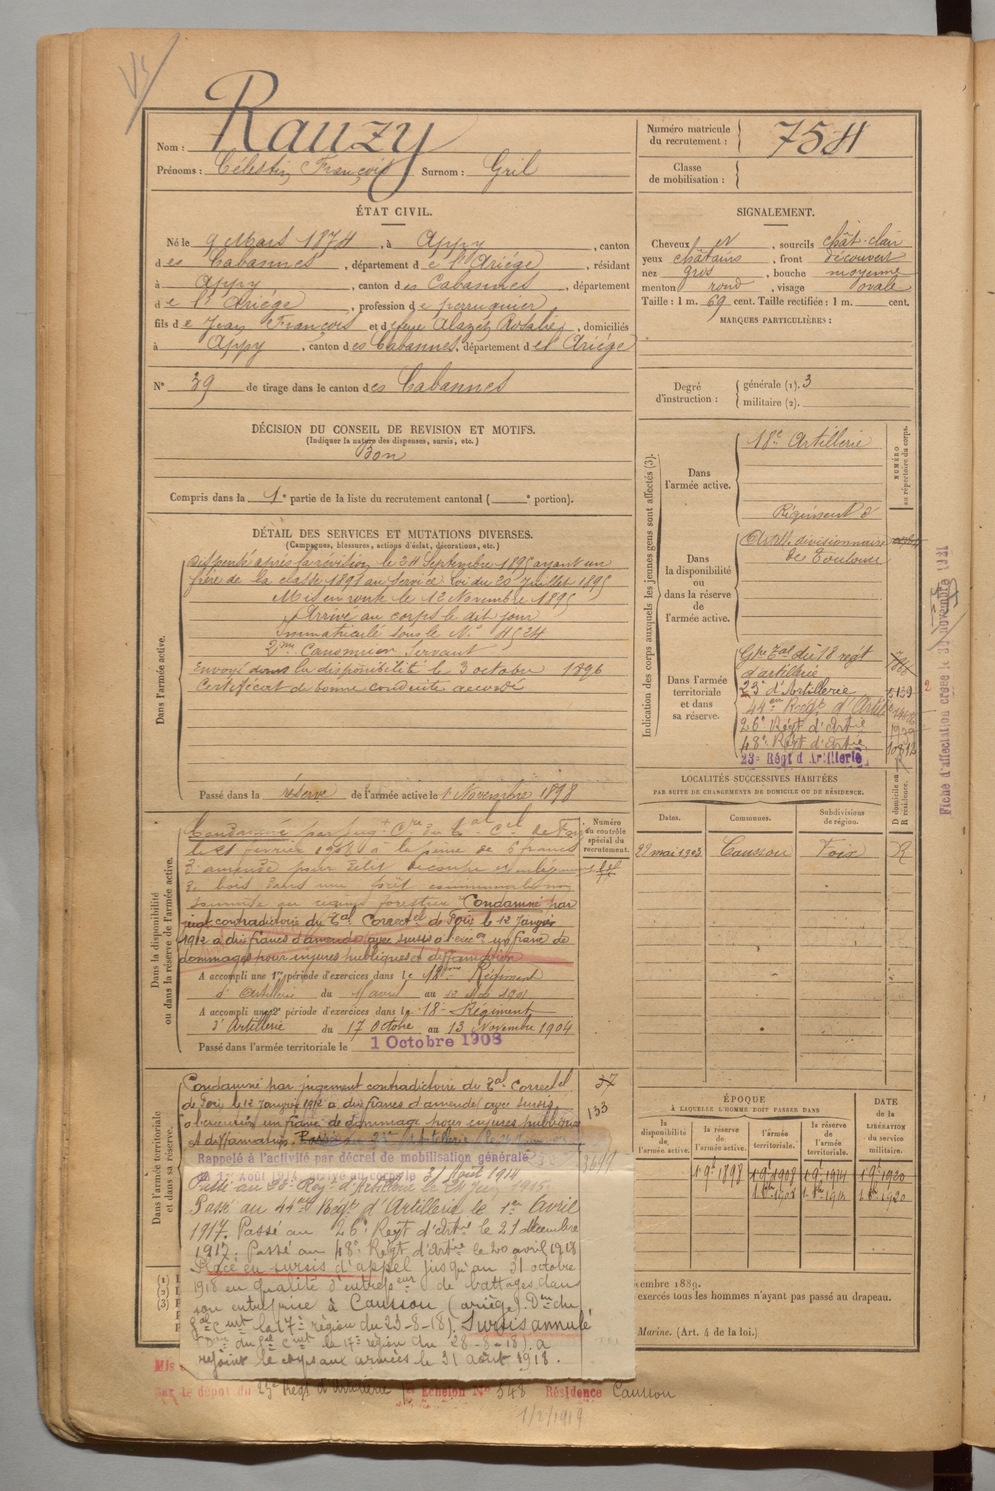 Rauzy
Nom :
Prénoms : Célestin François Surnom : Gril
Numéro matricule du recrutement : 754
Classe de mobilisation :
ÉTAT CIVIL.
Né le 9 Mars 1874, à Appy, canton
des Cabannes, département de l'Ariége, résidant
à Appy, canton des Cabannes, département
de l'Ariége, profession de perruquier
fils de Jean François et de feue Alazet Rosalie, domiciliés
à Appy, canton des Cabannes, département de l'Ariége
N° 39 de tirage dans le canton des Cabannes
SIGNALEMENT.
Cheveux et, sourcils chât-clair
yeux châtains, front découvert
nez gros, bouche moyenne
menton rond, visage ovale
Taille : 1 m. 69 cent. Taille rectifiée : 1 m. cent.
MARQUES PARTICULIÈRES :
Degré d'instruction : générale (1). 3
militaire (2).
DÉCISION DU CONSEIL DE REVISION ET MOTIFS.
(Indiquer la nature des dispenses, sursis, etc.)
Bon
Compris dans la 1e partie de la liste du recrutement cantonal ( e portion).
DÉTAIL DES SERVICES ET MUTATIONS DIVERSES.
(Campagnes, blessures, actions d'éclat, décorations, etc.)
Dans l'armée active.
Dispensé après la révision le 24 Septembre 1895 ayant un
frère de la classe 1891 au service Loi du 20 Juillet 1895
Mis en route le 12 Novembre 1895
Arrivé au corps le dit jour
Immatriculé sous le N° 4524
2me Canonnier Servant
Envoyé dans la disponibilité le 3 octobre 1896
Certificat de bonne conduite accordé
Passé dans la réserve de l'armée active le 1 Novembre 1898
Indication des corps auxquels les jeunes gens sont affectés (3).
NUMÉRO au répertoire du corps.
Dans l'armée active.
18e Artillerie
Dans la disponibilité ou dans la réserve de l'armée active.
Régiment d'
Artil divisionnaire
de Toulouse
Dans l'armée territoriale et dans sa réserve.
Gpe Tal du 18 régt
d'artillerie
23e d'Artillerie 5139
44me Régt d'Artie
26e Régt d'Artie
48e Régt d'Artie 10812
23e Régt d'Artillerie
Fiche d'affectation créée le novembre 1921
LOCALITÉS SUCCESSIVES HABITÉES
PAR SUITE DE CHANGEMENTS DE DOMICILE OU DE RÉSIDENCE.
Dates. Communes. Subdivisions de région. D domicile ou R résidence.
22 mai 1903 Caussou Foix R
Dans la disponibilité ou dans la réserve de l'armée active.
Numéro du contrôle spécial du recrutement.
Condamné par jugt Cre du Tal Cel de Foix
le 21 février 1908 à la peine de 6 francs
d'amende pour délit de coupe et enlèvement
de bois dans une forêt communale non
soumise au régime forestier Condamné par
jugt contradictoire du Tal Correctel de Foix le 12 Janvier
1912 à dix francs d'amende avec sursis à l'exécon un franc de
dommages pour injures publiques et diffamation
A accompli une 1re période d'exercices dans le 18me Régiment
d'Artillerie du 15 avril au 12 Mai 1901
A accompli une 2e période d'exercices dans le 18e Régiment
d'Artillerie du 17 Octobre au 13 Novembre 1904
Passé dans l'armée territoriale le 1 Octobre 1908
Dans l'armée territoriale et dans sa réserve.
Condamné par jugement contradictoire du Tal Correctel
de Foix le 12 Janvier 1912 à dix francs d'amende avec sursis
à l'exécution un franc de dommage pour injures publiques
et diffamation.
37
133
Rappelé à l'activité par décret de mobilisation générale
31 Août 1914
Passé au 44me Régt d'Artillerie le 1er Avril
1917. Passé au 26e Régt d'Artie le 21 décembre
1917. Passé au 48e Régt d'Artie le 20 avril 1918
Placé en sursis d'appel jusqu'au 31 octobre
1918 en qualité d'entrepeur de battages dans
son entreprise à Caussou (ariège). Don du
Gal Cmt la 17e région du 23-8-18). Sursis annulé
(Don du Gal Cmt la 17e région du 28-8-18). a
rejoint le corps aux armées le 31 août 1918.
ÉPOQUE
À LAQUELLE L'HOMME DOIT PASSER DANS
la disponibilité de l'armée active. la réserve de l'armée active. l'armée territoriale. la réserve de l'armée territoriale.
DATE de la LIBÉRATION du service militaire.
1 9e 1898 1 9e 1908 1 9e 1914 1 9e 1920
1 8bre 1908 1 8bre 1914 1 8bre 1920
(1)
(2)
(3)
embre 1889.
exercés tous les hommes n'ayant pas passé au drapeau.
Marine. (Art. 4 de la loi.)
Mis
par le dépôt du 23e Régt d'artillerie Echelon N° 548 Résidence Caussou
1/2/1919